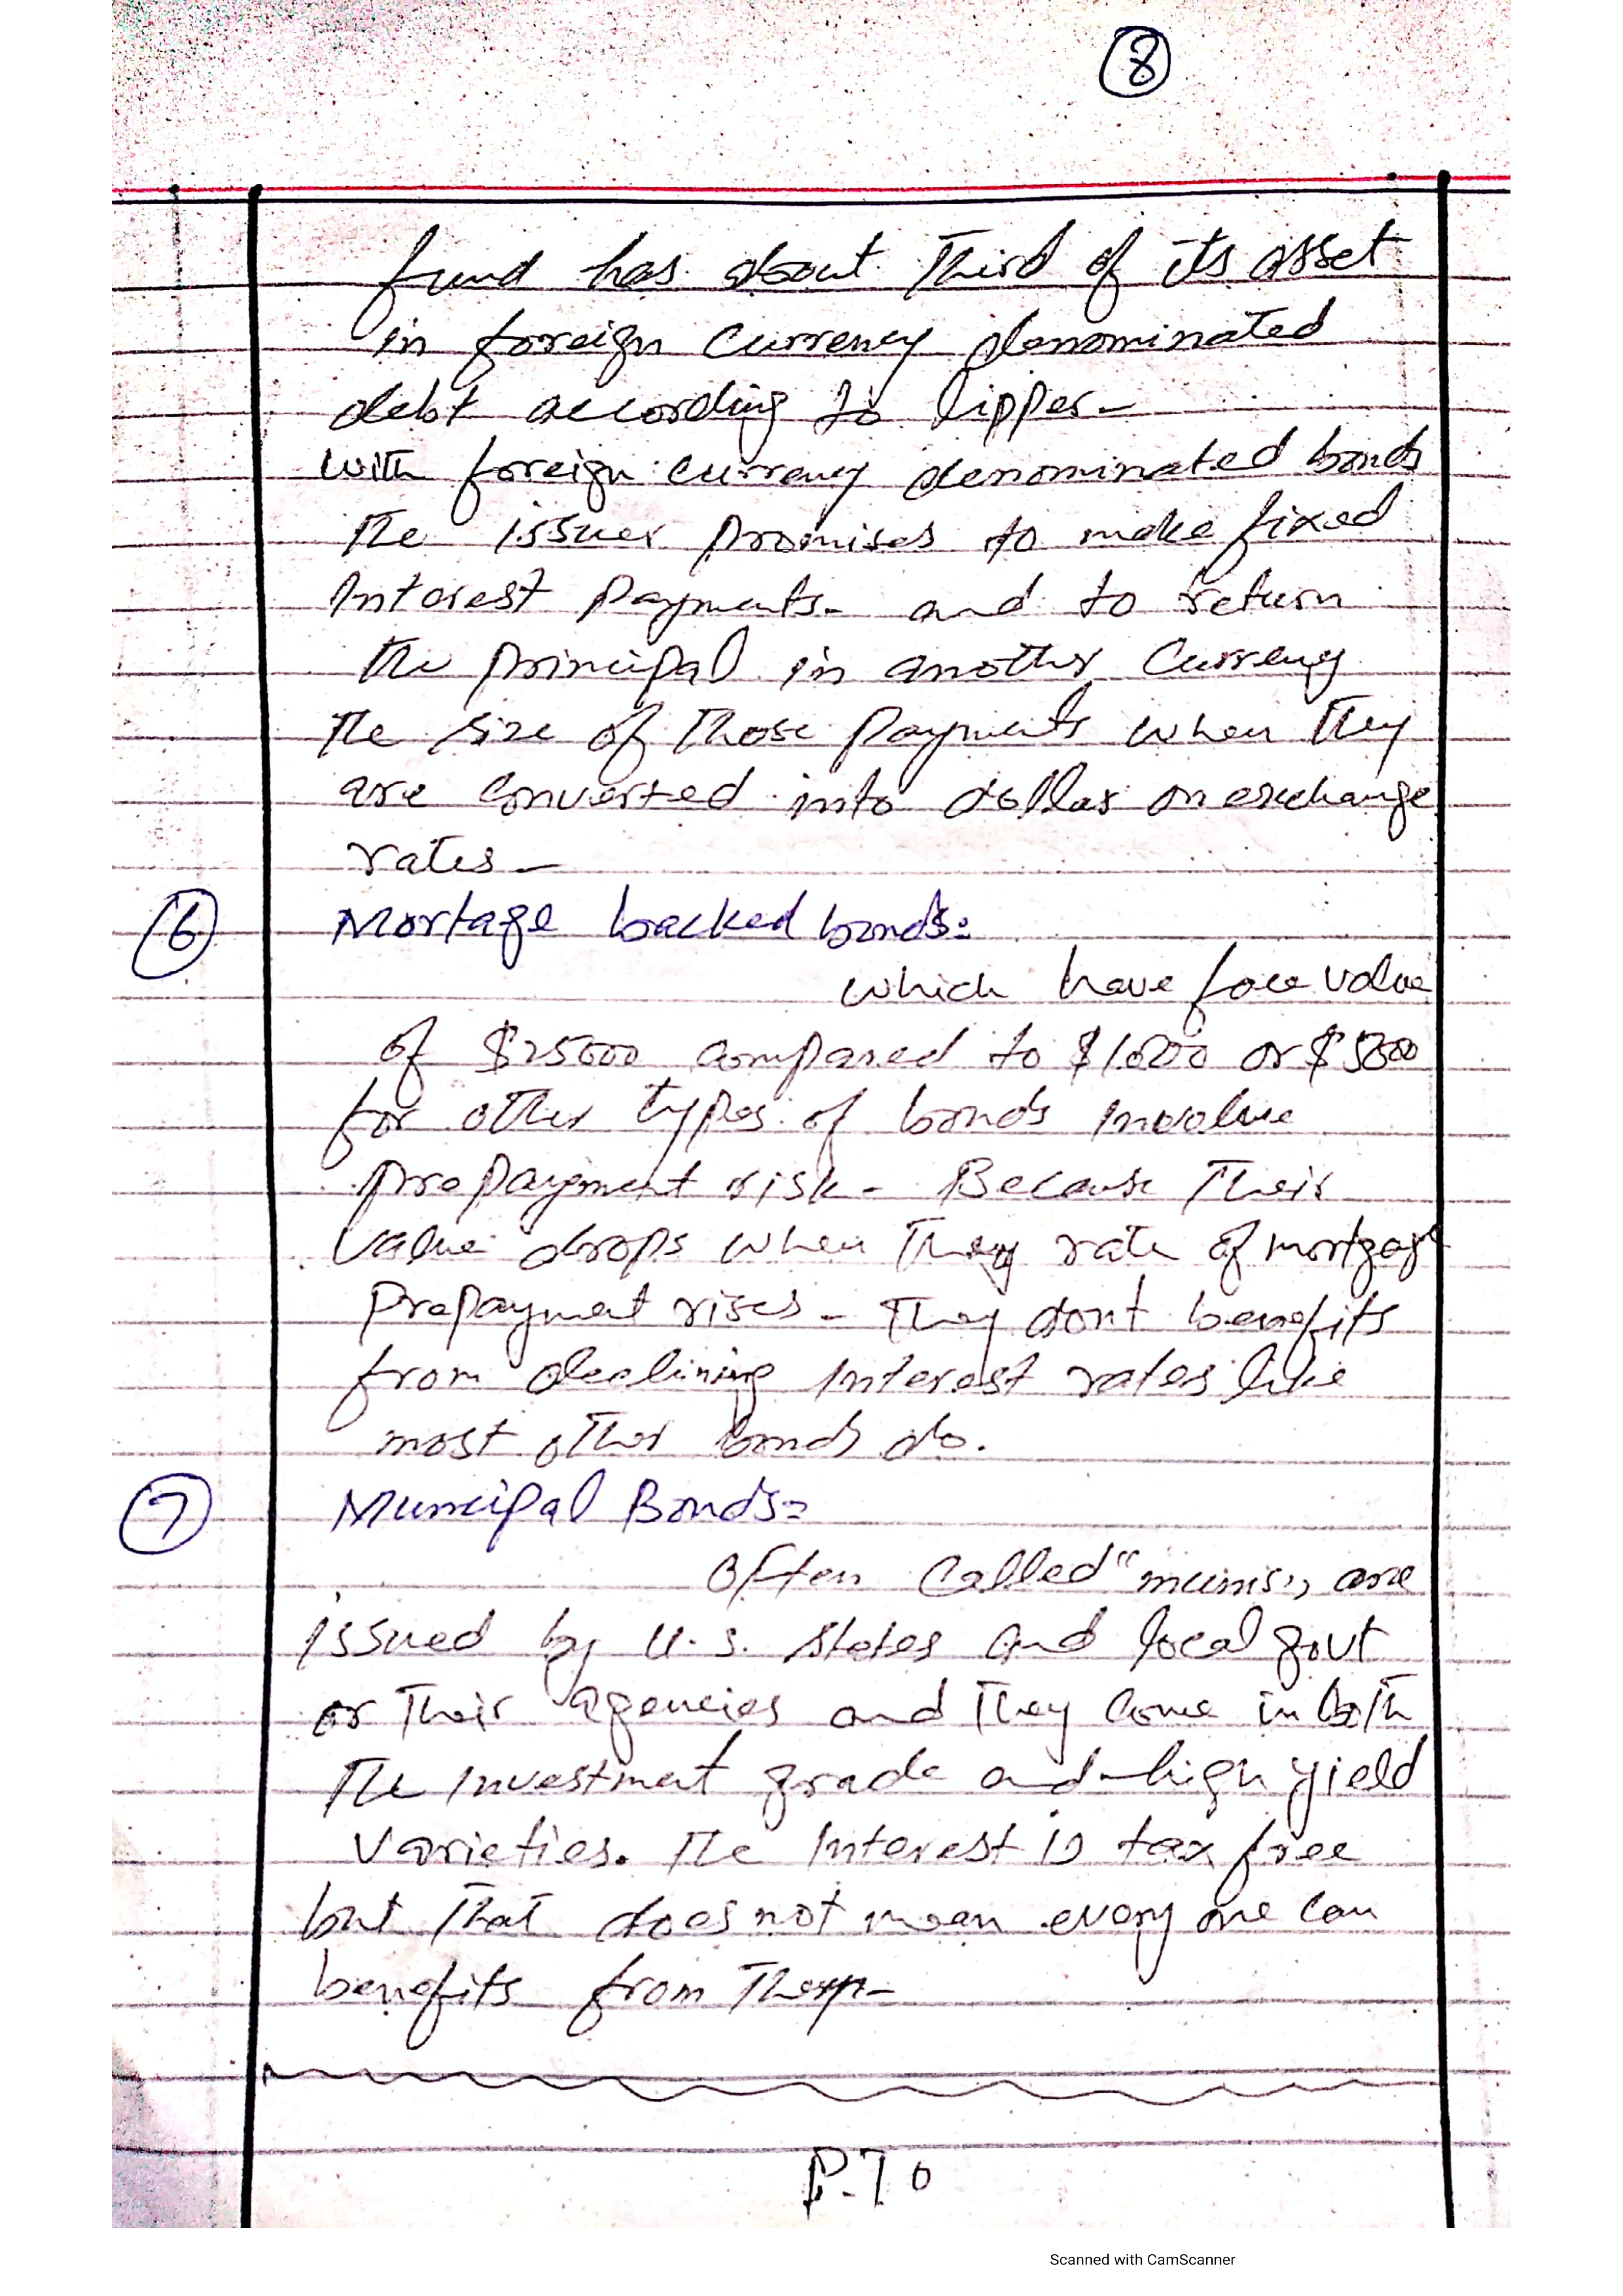 8
fund has about Third of its asset
in foreign currency denominated
debt according to lipper-
with foreign currency denominated bonds
The issuer promises to make fixed
Interest Payments- and to return
the principal in another currency
The size of Those Payments when They
are converted into dollar on exchange
rates-
6 Mortage backed bonds:
which have face value
of $25000 compared to $1000 or $5000
for other types of bonds involve
prepayment risk- Because Their
value drops when They rate of mortgage
Prepayment rises- They dont benefits
from declining interest rates like
most other bonds do.
7 Muncipal Bonds=
Often called "munis", are
issued by U.S. states and local govt
or Their agencies and They come in both
The Investment grade and high yield
varieties. The Interest is tax free
but That does not mean every one can
benefits from Them-
P.T O
Scanned with CamScanner